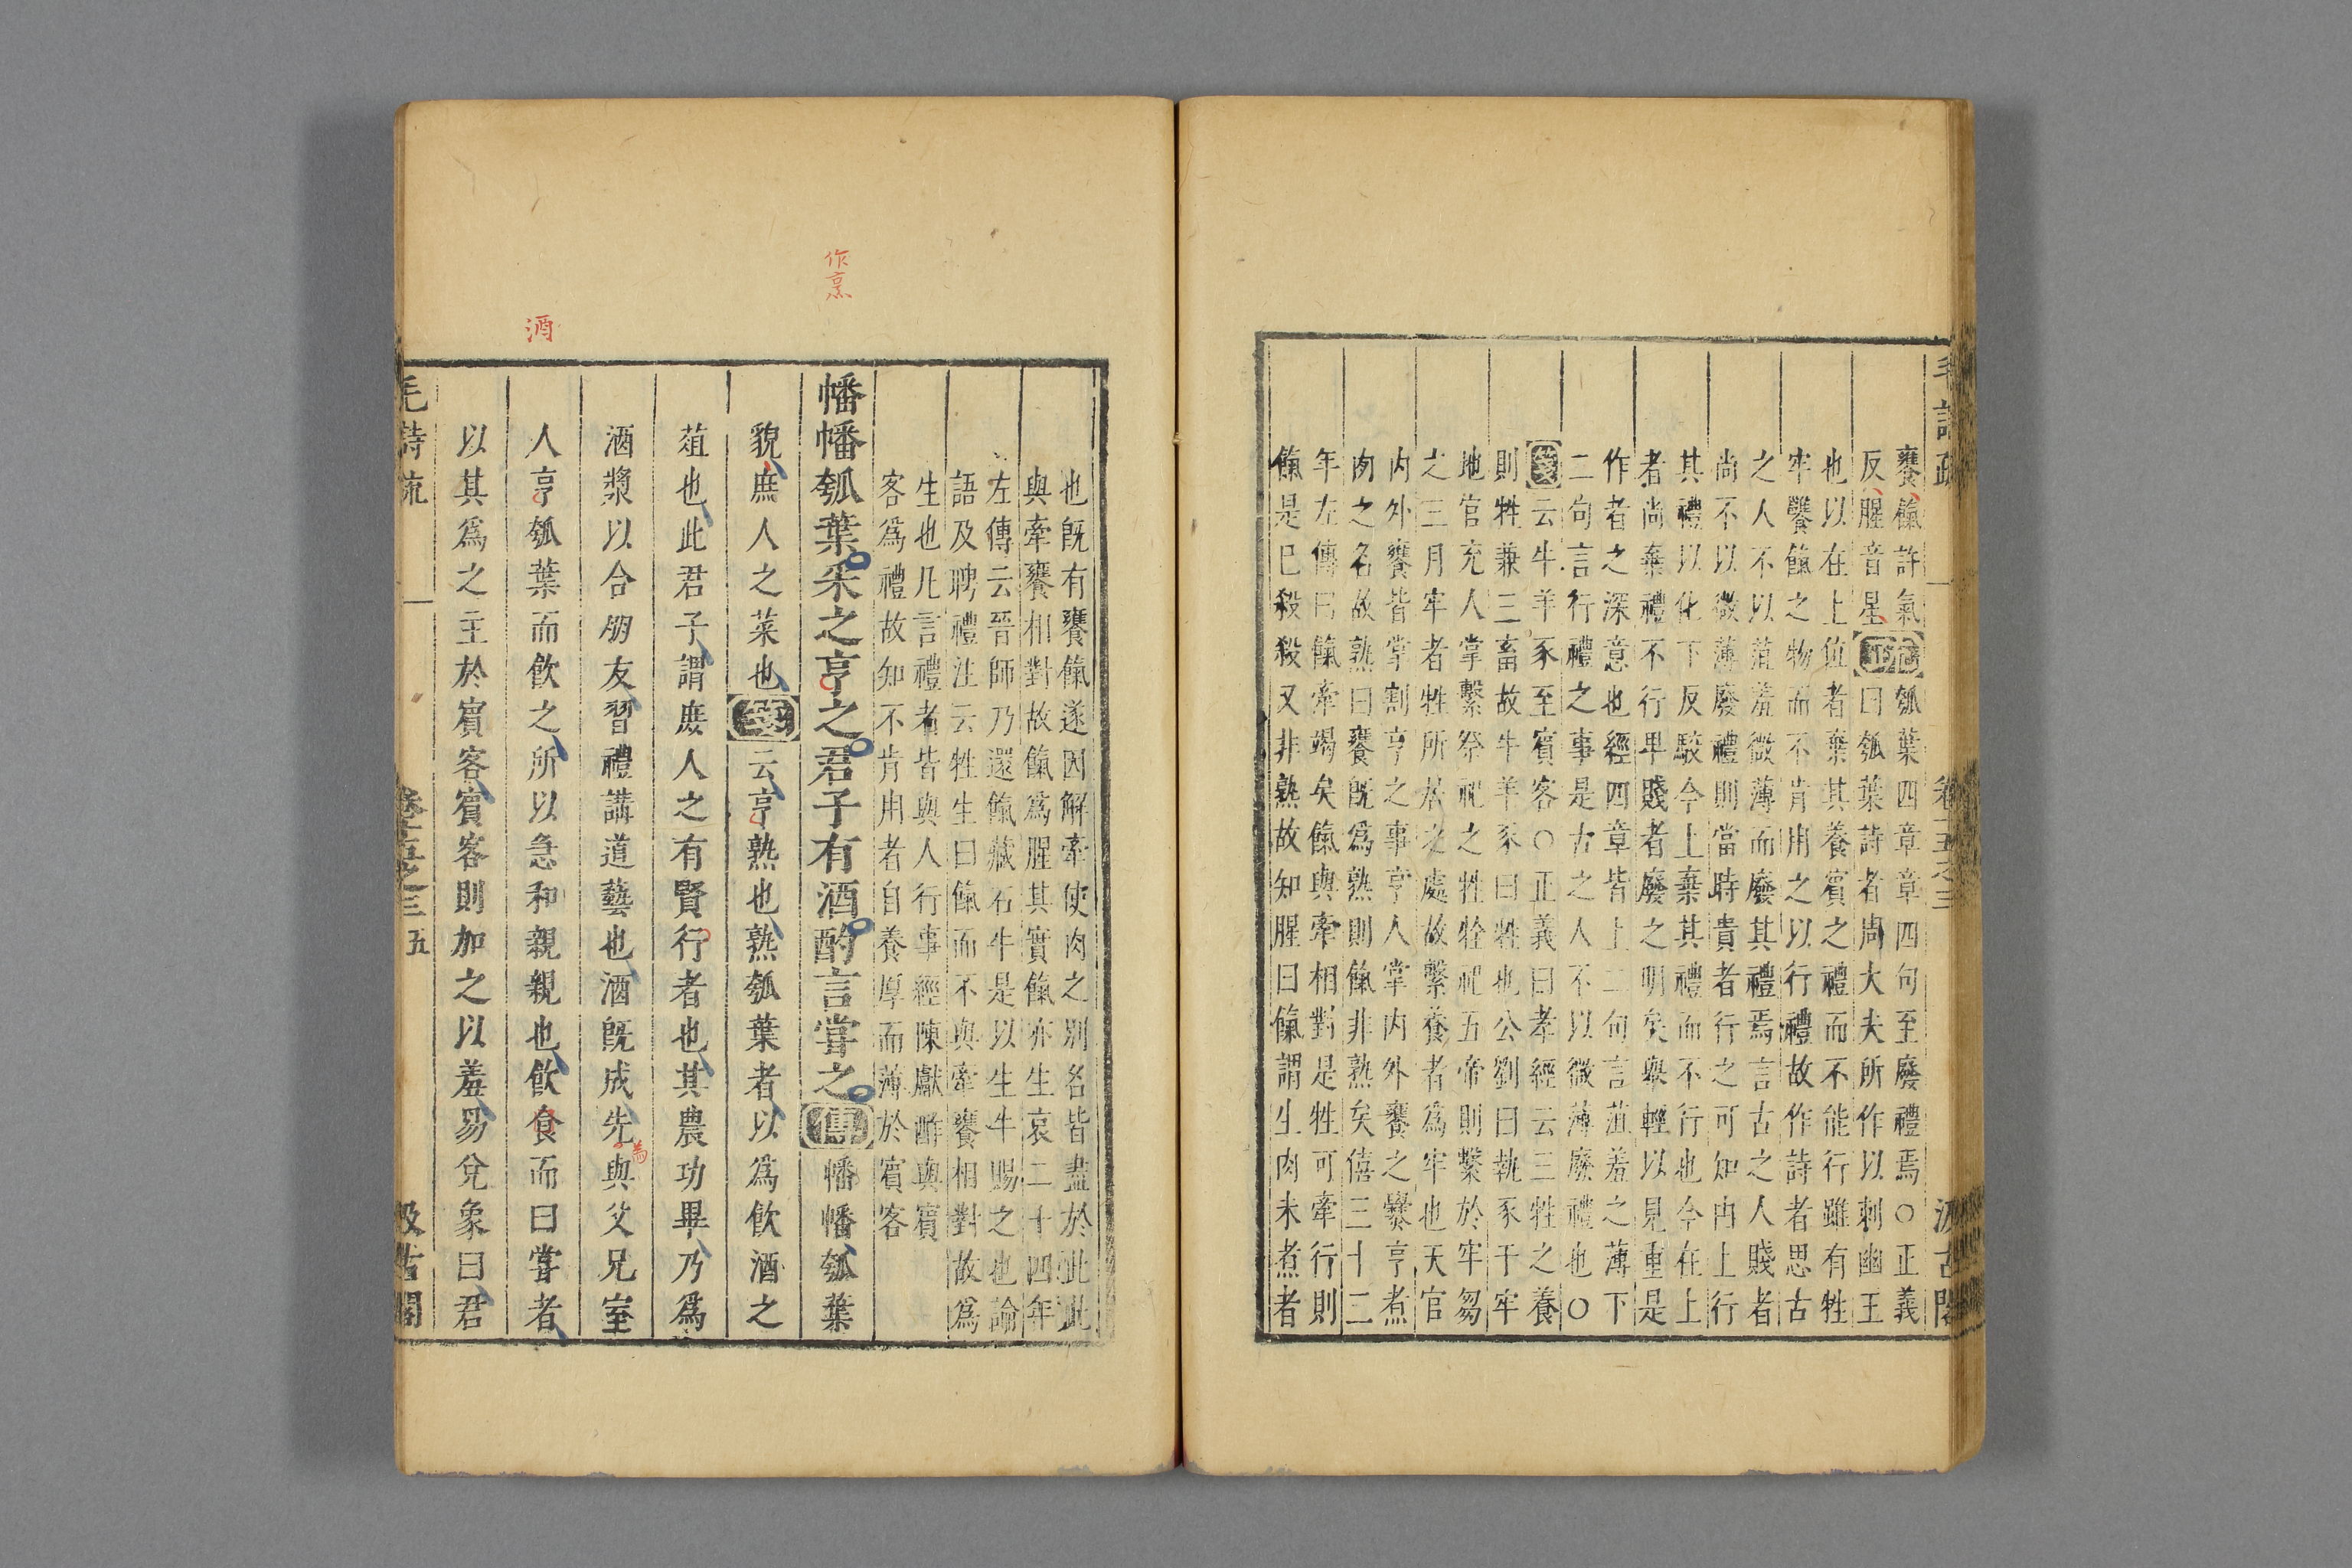 毛詩疏 卷十五之三 汲古閣
饔餼許氣
反腥音星
疏瓠葉四章章四句至廢禮焉○正義
曰瓠葉詩者周大夫所作以刺幽王
也以在上位者棄其養賓之禮而不能行雖有牲
牢饔餼之物而不肯用之以行禮故作詩者思古
之人不以菹羞微薄而廢其禮焉言古之人賤者
尚不以微薄廢禮則當時貴者行之可知由上行
其禮以化下反駮今上棄其禮而不行也今在上
者尚棄禮不行卑賤者廢之明矣舉輕以見重是
作者之深意也經四章皆上二句言菹羞之薄下
二句言行禮之事是古之人不以微薄廢禮也○
箋云牛羊豕至賓客○正義曰孝經云三牲之養
則牲兼三畜故牛羊豕曰牲也公劉曰執豕于牢
地官充人掌繫祭祀之牲牷祀五帝則繫於牢芻
之三月牢者牲所居之處故繫養者為牢也天官
內外饔皆掌割亨之事亨人掌內外饔之爨亨煮
肉之名故熟曰饔既爲熟則餼非熟矣僖三十二
年左傳曰餼牽竭矣餼與牽相對是牲可牽行則
餼是已殺殺又非熟故知腥曰餼謂生肉未煮者
也既有饔餼遂因解牽使肉之別名皆盡於此此
與牽饔相對故餼爲腥其實餼亦生哀二十四年
左傳云晉師乃還餼臧石牛是以生牛賜之也論
語及聘禮注云牲生曰餼而不與牽饔相對故爲
生也凡言禮者皆與人行事經陳獻酢與賓
客爲禮故知不肯用者自養厚而薄於賓客
作烹
幡幡瓠葉采之亨之君子有酒酌言嘗之傳幡幡瓠葉
貌庶人之菜也箋云亨熟也熟瓠葉者以爲飲酒之
菹也此君子謂庶人之有賢行者也其農功畢乃爲
酒漿以合朋友習禮講道藝也酒既成先與父兄室
為
酒
人亨瓠葉而飲之所以急和親親也飲食而曰嘗者
以其爲之主於賓客賓客則加之以羞易兌象曰君
毛詩疏 卷十五之三 五 汲古閣